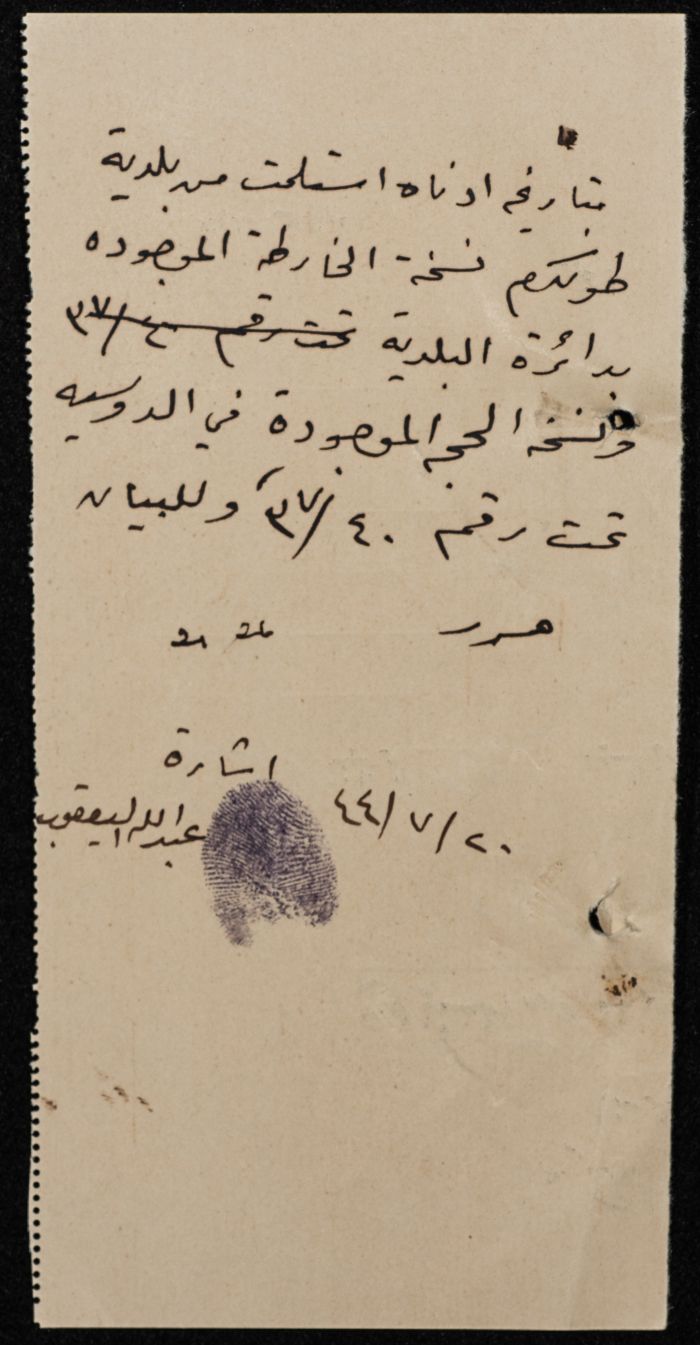 بتاريخه ادناه استلمت من بلدية
طولكرم نسخة الخارطة الموجوده
بدائرة البلدية تحت رقم ٣٧/٤٠
ونسخه الحجج الموجودة في الدوسيه
تحت رقم ٣٧/٤٠ وللبيان
حرر
اشارة
٤٤/٧/٢٠
عبدالله اليعقوب